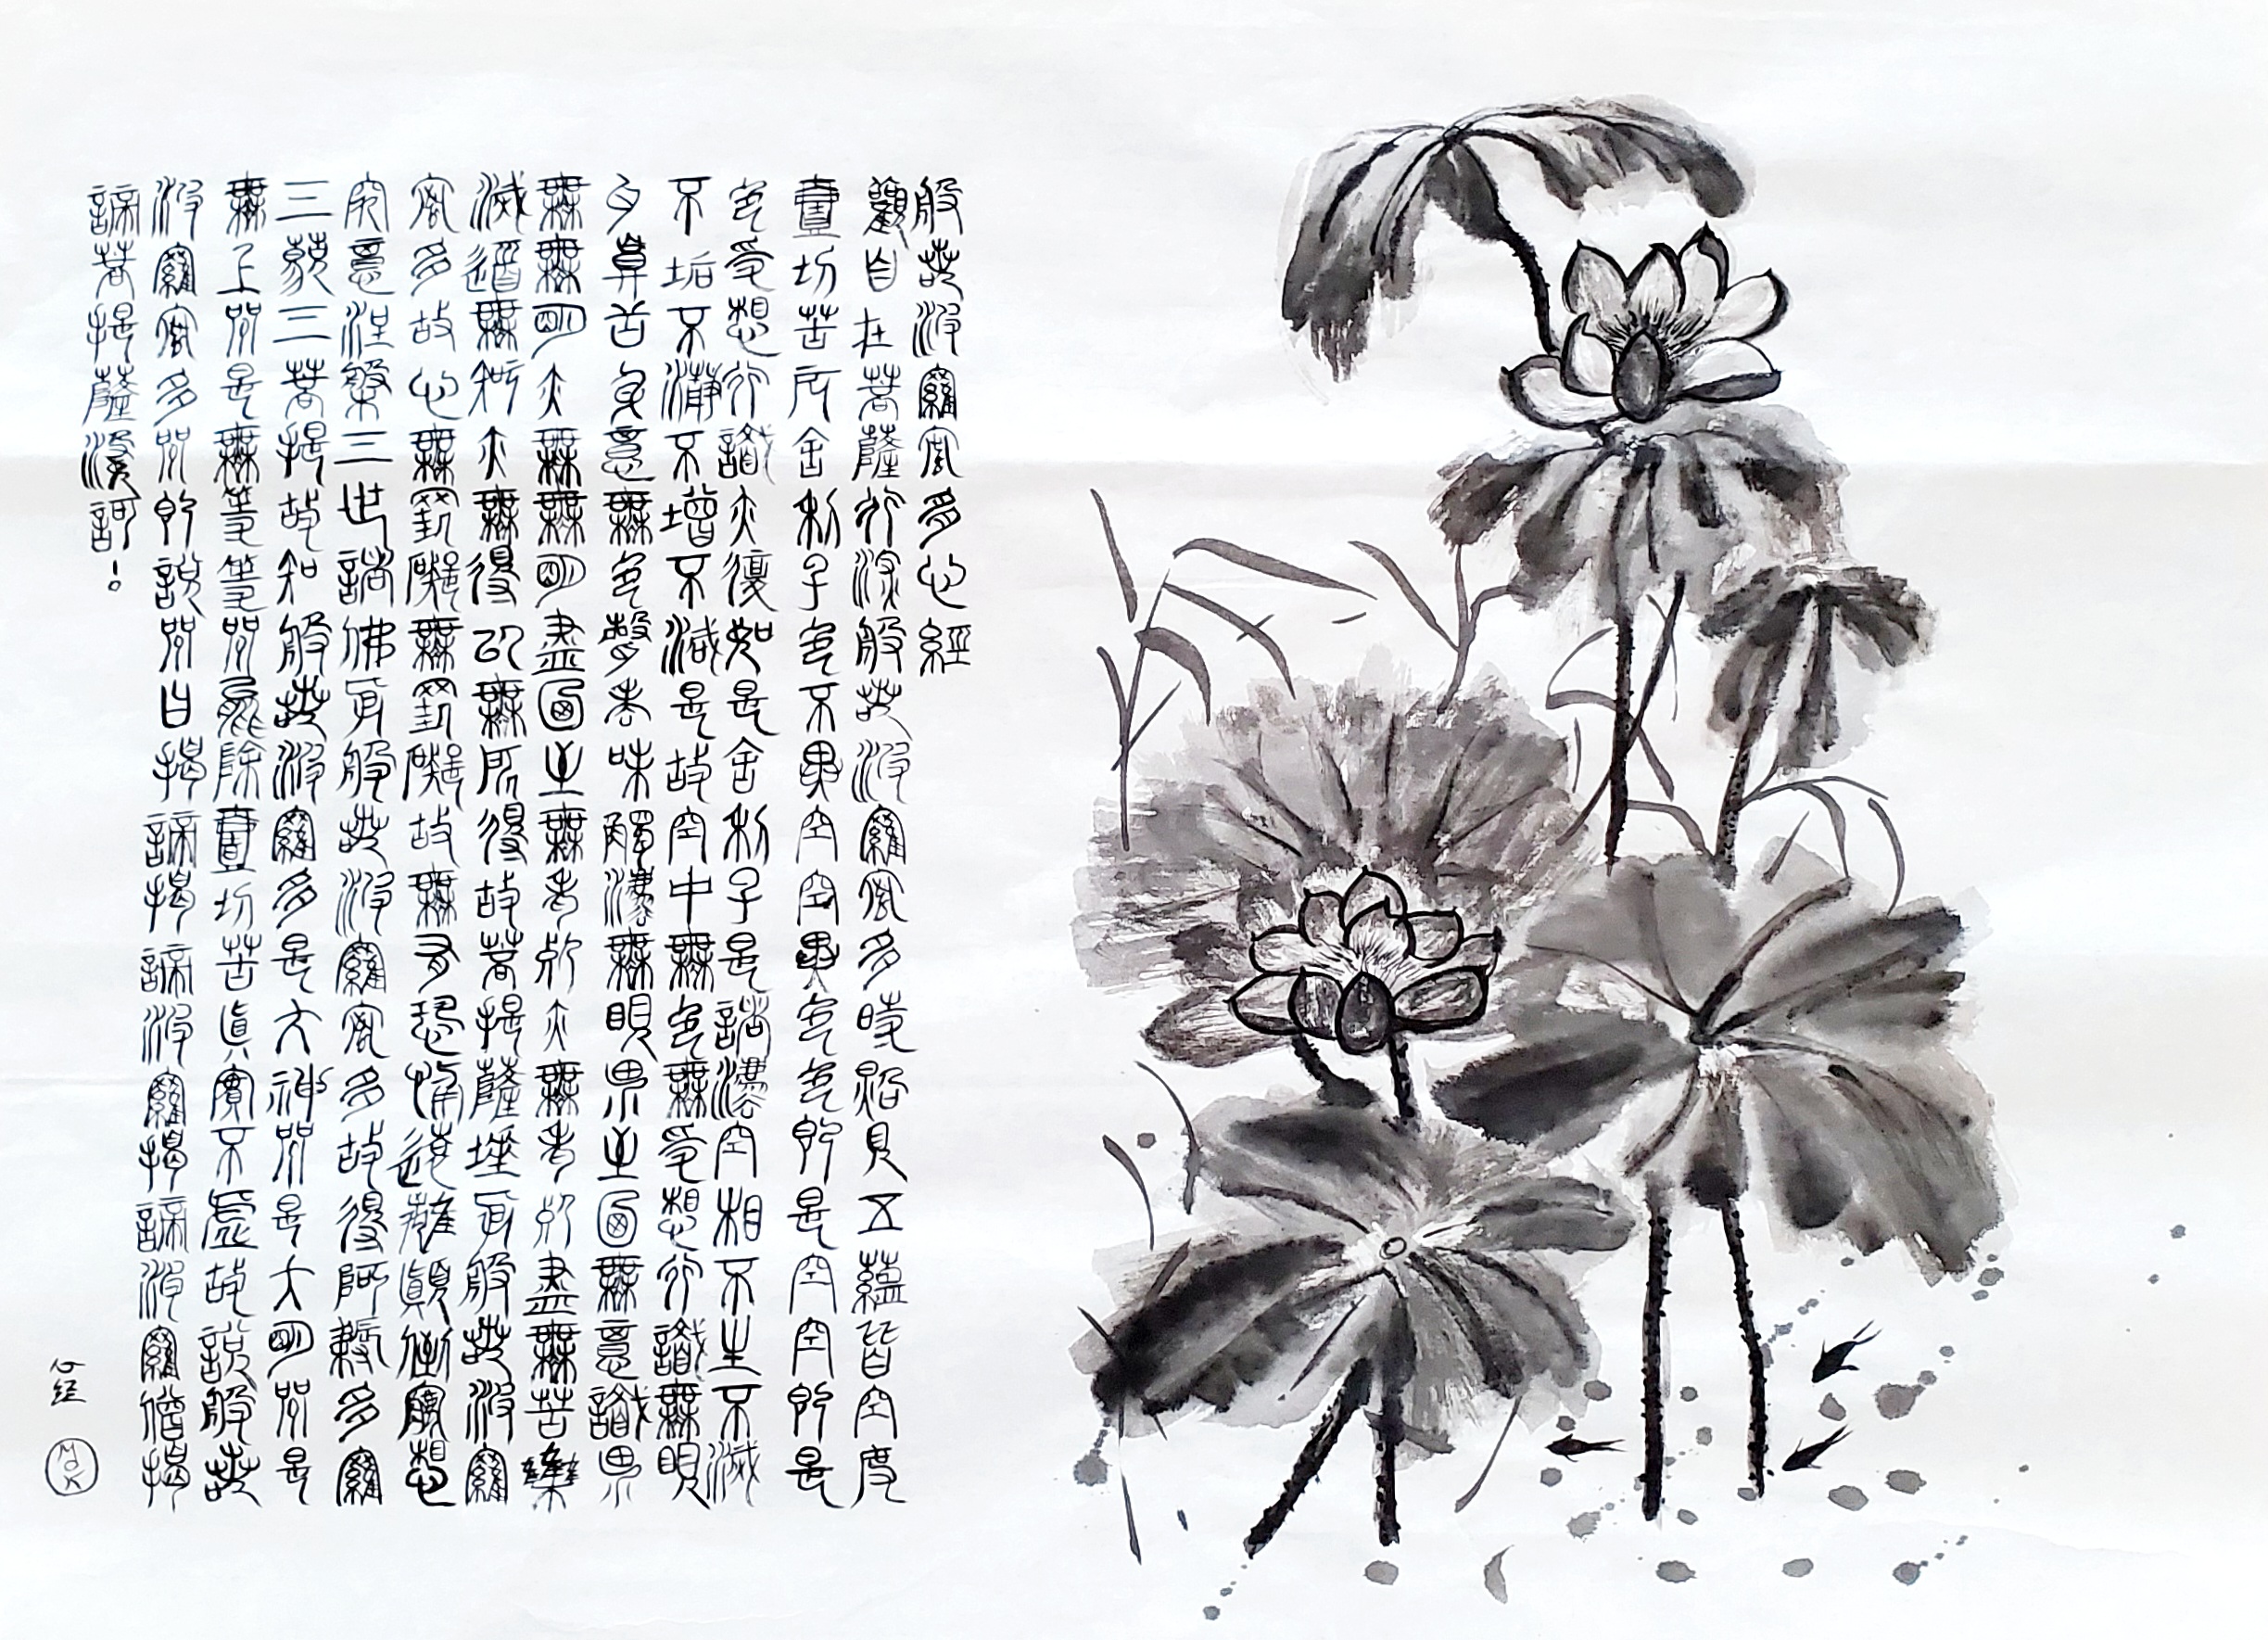 般若波羅蜜多心經
觀自在菩薩行深般若波羅蜜多時照見五蘊皆空度
壹切苦厄舍利子色不異空空異色色即是空空即是
色受想行識亦復如是舍利子是諸法空相不生不滅
不垢不淨不增不減是故空中無色無受想行識無眼
耳鼻舌身意無色聲香味觸法無眼界至乃無意識界
無無明亦無無明盡乃至無老死亦無老死盡無苦集
滅道無智亦無得以無所得故菩提薩埵依般若波羅
蜜多故心無罣礙無罣礙故無有恐怖遠離顛倒夢想
究竟涅槃三世諸佛依般若波羅蜜多故得阿耨多羅
三藐三菩提故知般若波羅多是大神咒是大明咒是
無上咒是無等等咒能除壹切苦真實不虛故說般若
波羅蜜多咒即說咒曰揭諦揭諦波羅揭諦波羅僧揭
諦菩提薩婆訶!。
心经
MOK